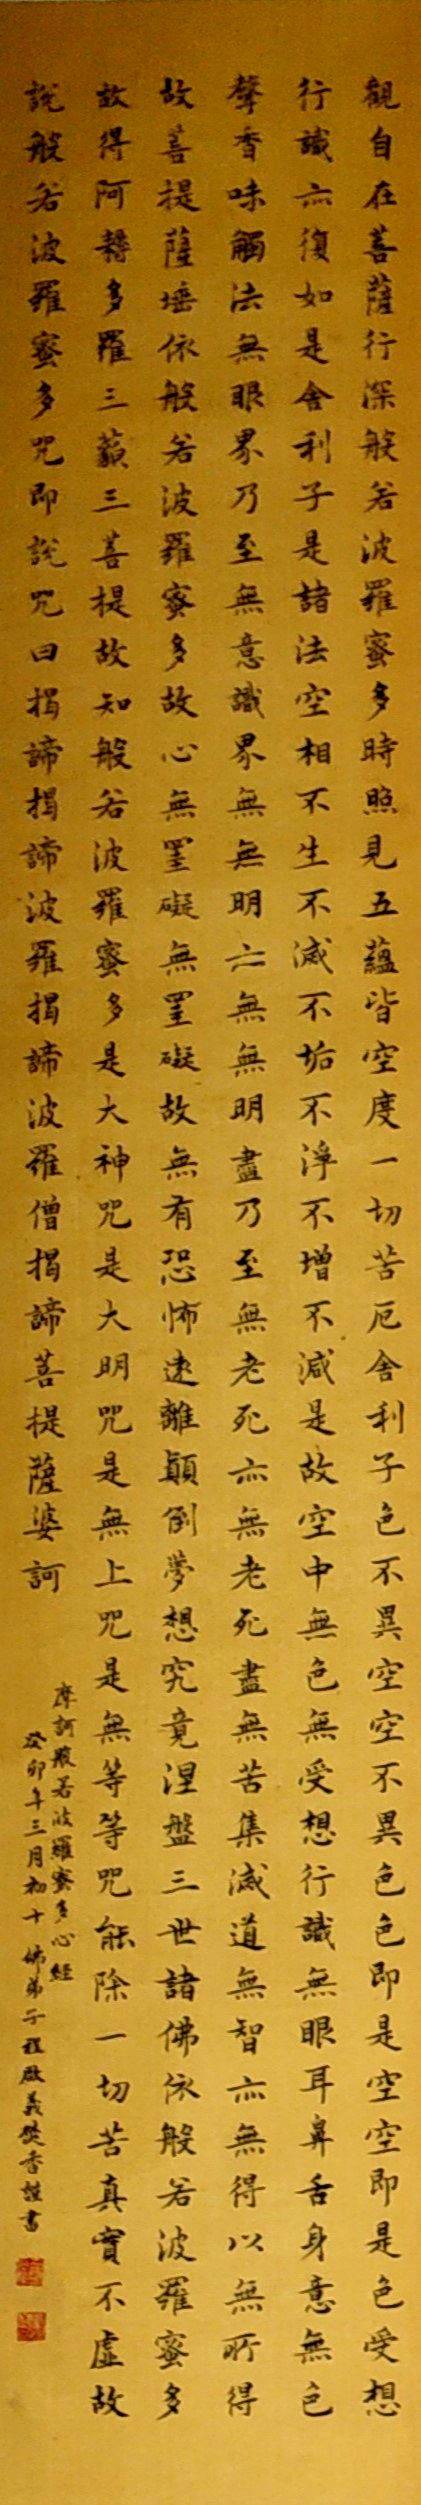 觀自在菩薩行深般若波羅蜜多時照見五蘊皆空度一切苦厄舍利子色不異空空不異色色即是空空即是色受想
行識亦復如是舍利子是諸法空相不生不滅不垢不淨不增不減是故空中無色無受想行識無眼耳鼻舌身意無色
聲香味觸法無眼界乃至無意識界無無明亦無無明盡乃至無老死亦無老死盡無苦集滅道無智亦無得以無所得
故菩提薩埵依般若波羅蜜多故心無罣礙無罣礙故無有恐怖遠離顛倒夢想究竟涅盤三世諸佛依般若波羅蜜多
故得阿耨多羅三藐三菩提故知般若波羅蜜多是大神咒是大明咒是無上咒是無等等咒能除一切苦真實不虛故
說般若波羅蜜多咒即說咒曰揭諦揭諦波羅揭諦波羅僧揭諦菩提薩婆訶
摩訶般若波羅蜜多心經
癸卯年三月初十佛弟子程啟義焚香謹書